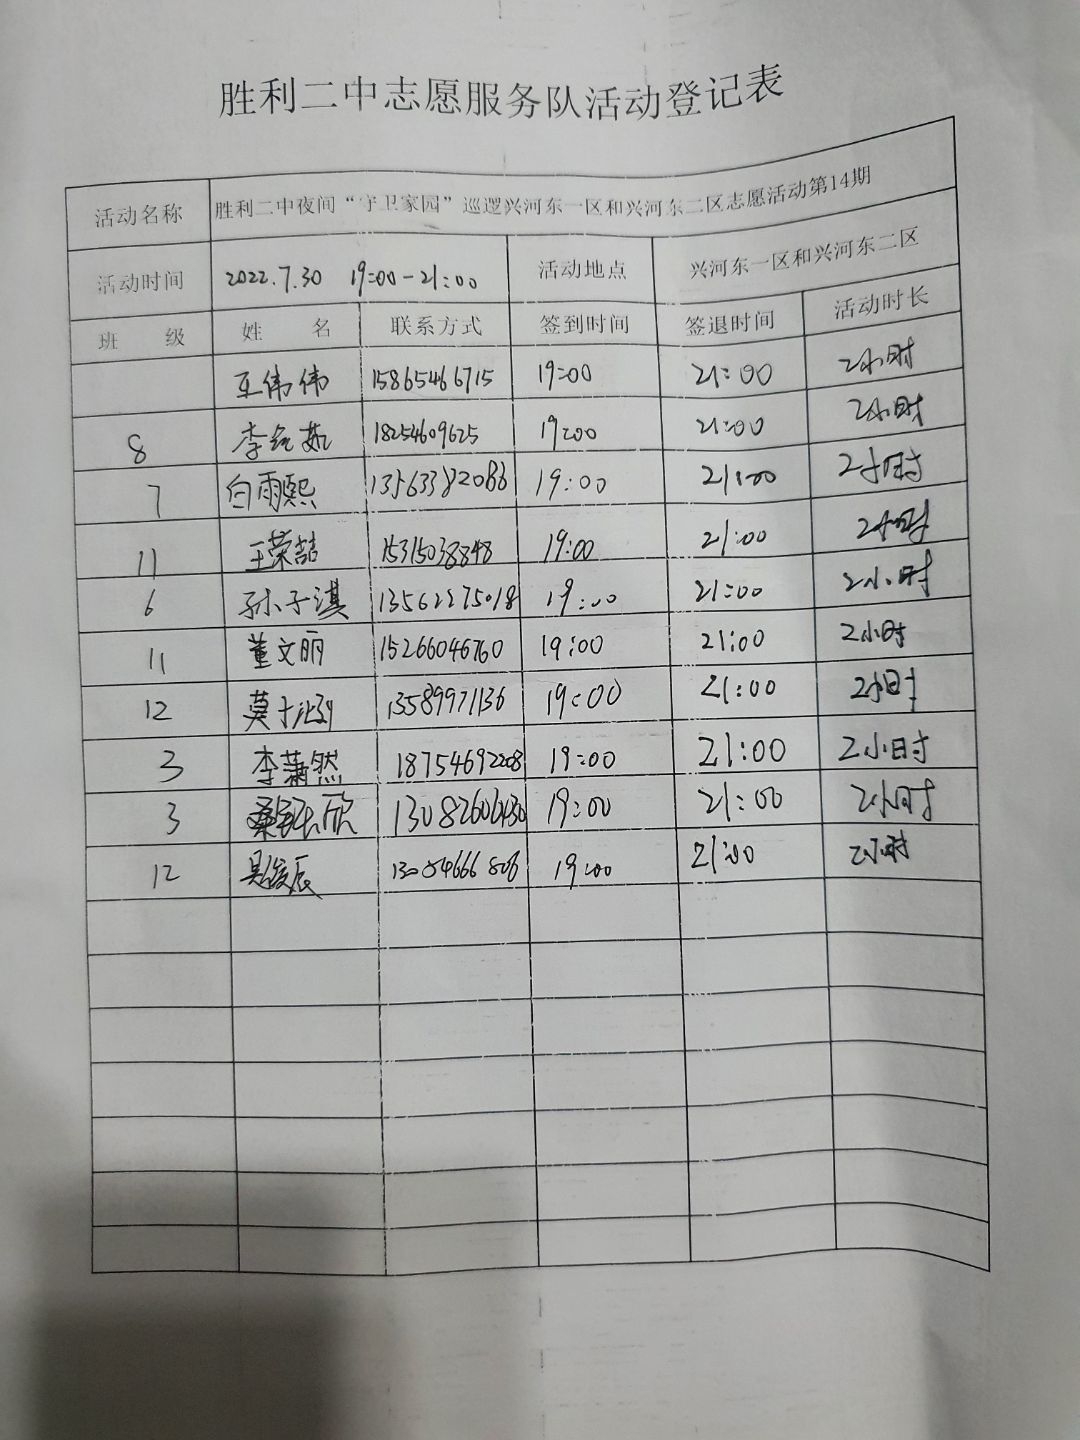 胜利二中志愿服务队活动登记表
活动名称 胜利二中夜间“守卫家园”巡逻兴河东一区和兴河东二区志愿活动第14期
活动时间 2022.7.30 19:00-21:00 活动地点 兴河东一区和兴河东二区
班 级 姓 名 联系方式 签到时间 签退时间 活动时长
王伟伟 15865466715 19:00 21:00 2小时
8 李 茹 18254609625 19:00 21:00 2小时
7 白雨熙 13563382086 19:00 21:00 2小时
11 王荣喆 15315038848 19:00 21:00 2小时
6 孙子淇 13562275018 19:00 21:00 2小时
11 董文丽 15266046760 19:00 21:00 2小时
12 莫 13589971136 19:00 21:00 2小时
3 李潇然 18754692208 19:00 21:00 2小时
3 桑 欣 19:00 21:00 2小时
12 吴俊辰 19:00 21:00 2小时